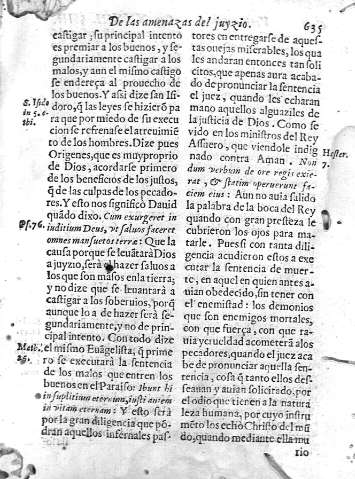 De las amenazas del juyzio. 635
castigar; su principal intento
es premiar a los buenos, y se-
gundariamente castigar a los
malos, y aun el mismo castigo
se endereça al prouecho de
los buenos. Y assi dize san Isi-
doro, q̃ las leyes se hizierõ pa
ra que por miedo de su execu
cion se refrenase el atreuimiẽ
to de los hombres. Dize pues
Origenes, que es muy proprio
de Dios, acordarse primero
de los beneficios de los justos,
q̃ de las culpas de los pecado-
res. Y esto nos significó Dauid
quãdo dixo. Cum exurgeret in
iuditium Deus, vt saluos faceret
omnes mansuetos terræ: Que la
causa porque se leuãtarà Dios
a juyzio, serà hazer saluos a
los que son mansos en la tierra;
y no dize que se leuantarà a
castigar a los soberuios, porq̃
aunque lo a de hazer serà se-
gundariamente, y no de prin-
cipal intento. Con todo dize
el mismo Euãgelista, q̃ prime
ro se executarà la sentencia
de los malos que entren los
buenos en el Paraiso: Ibunt hi
in suplitium eternum, iusti autem
in vitam eternam: Y esto serà
por la gran diligencia que põ-
dran aquellos infernales pas-
S. Isid.
in 5. e-
thi.
Ps. 76.
Mat.
25.
tores en entregarse de aques-
tas ouejas miserables, los qua
les andaran entonces tan soli
citos, que apenas aura acaba-
do de pronunciar la sentencia
el juez, quando les echaran
mano aquellos alguaziles de
la justicia de Dios. Como se
vido en los ministros del Rey
Assuero, que viendole indig
nado contra Aman. Non
dum verbum de ore regis exie-
rat, & statim operuerunt fa-
ciem eius: Aun no auia salido
la palabra de la boca del Rey
quando con gran presteza le
cubrieron los ojos para ma-
tarle. Pues si con tanta dili-
gencia acudieron estos a exe
cutar la sentencia de muer-
te, en aquel en quien antes a-
uian obedecido, sin tener con
el enemistad: los demonios
que son enemigos mortales,
con que fuerça, con que ra-
uia y crueldad acometerà a los
pecadores, quando el juez aca
be de pronunciar aquella sen-
tencia, cosa q̃ tanto ellos des-
seauan y auian solicitado, por
el odio que tienen a la natura
leza humana, por cuyo instru
mẽto los echò Christo del mũ
do, quando mediante ella mu
rio
Hester.
7.